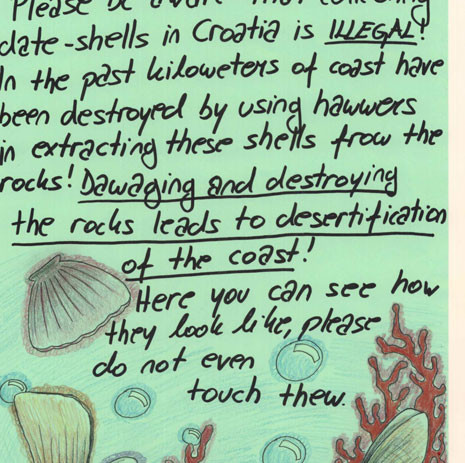 Please be aware that
date-shells in Croatia is ILLEGAL!
In the past kilometers of coast have
been destroyed by using hammers
in extracting these shells from the
rocks! Damaging and destroying
the rocks leads to desertification
of the coast!
Here you can see how
they look like, please
do not even
touch them.